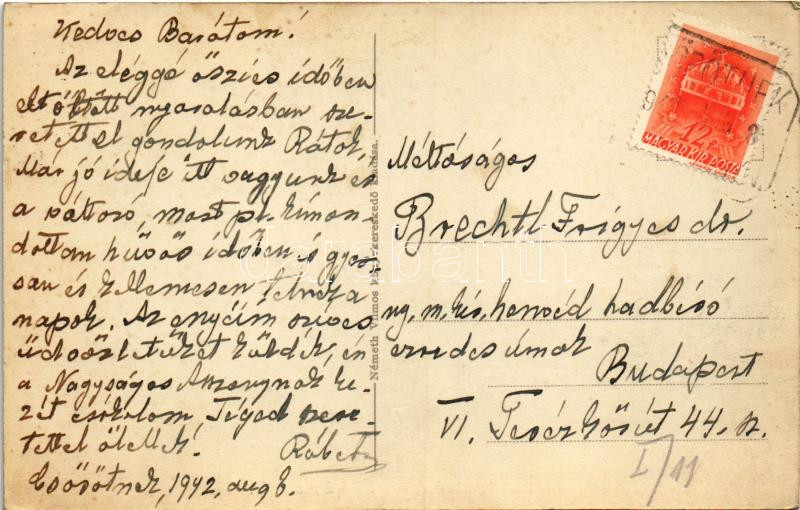 Kedves Barátom!
Az eléggé őszies időben
eltöltött nyaralásban sze-
retettel gondolunk Rátok.
Már jó ideje itt vagyunk és
a változó, most pl. kimon-
dottan hűvös időben is gyor-
san és kellemesen telnek a
napok. Az enyéim szíves
üdvözletüket küldik, én
a Nagyságos Asszonynak ke-
zét csókolom, Téged szere-
tettel ölellek!
Róbert
Csösötnek, 1942. aug 8.
Németh Vilmos könyvkereskedő kiadása.
MAGYAR KIR. POSTA
12 f
Méltóságos
Brechtl Frigyes dr.
ny. m. kir. honvéd hadbíró
ezredes úrnak
Budapest
VI. Teréz körút 44. sz.
I/11
darabanth